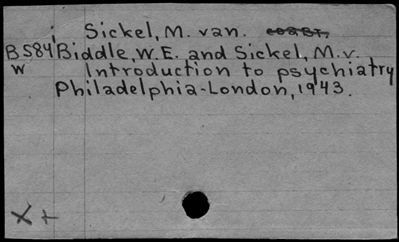 Sickel, M. van.
B584 Biddle, W.E. and Sickel, M.v.
W Introduction to psychiatry
Philadelphia-London, 1943.
X +